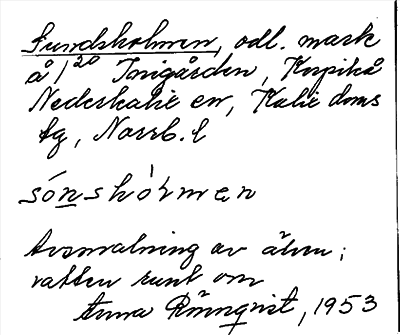 Sundsholmen, odl. mark
å 1²⁰ Innigården, Korpikå
Nederkalix sn, Kalix doms
tg, Norrb. l
sónshòlmen
Avsmalning av älven;
vatten runt om
Anna Rönnqvist, 1953